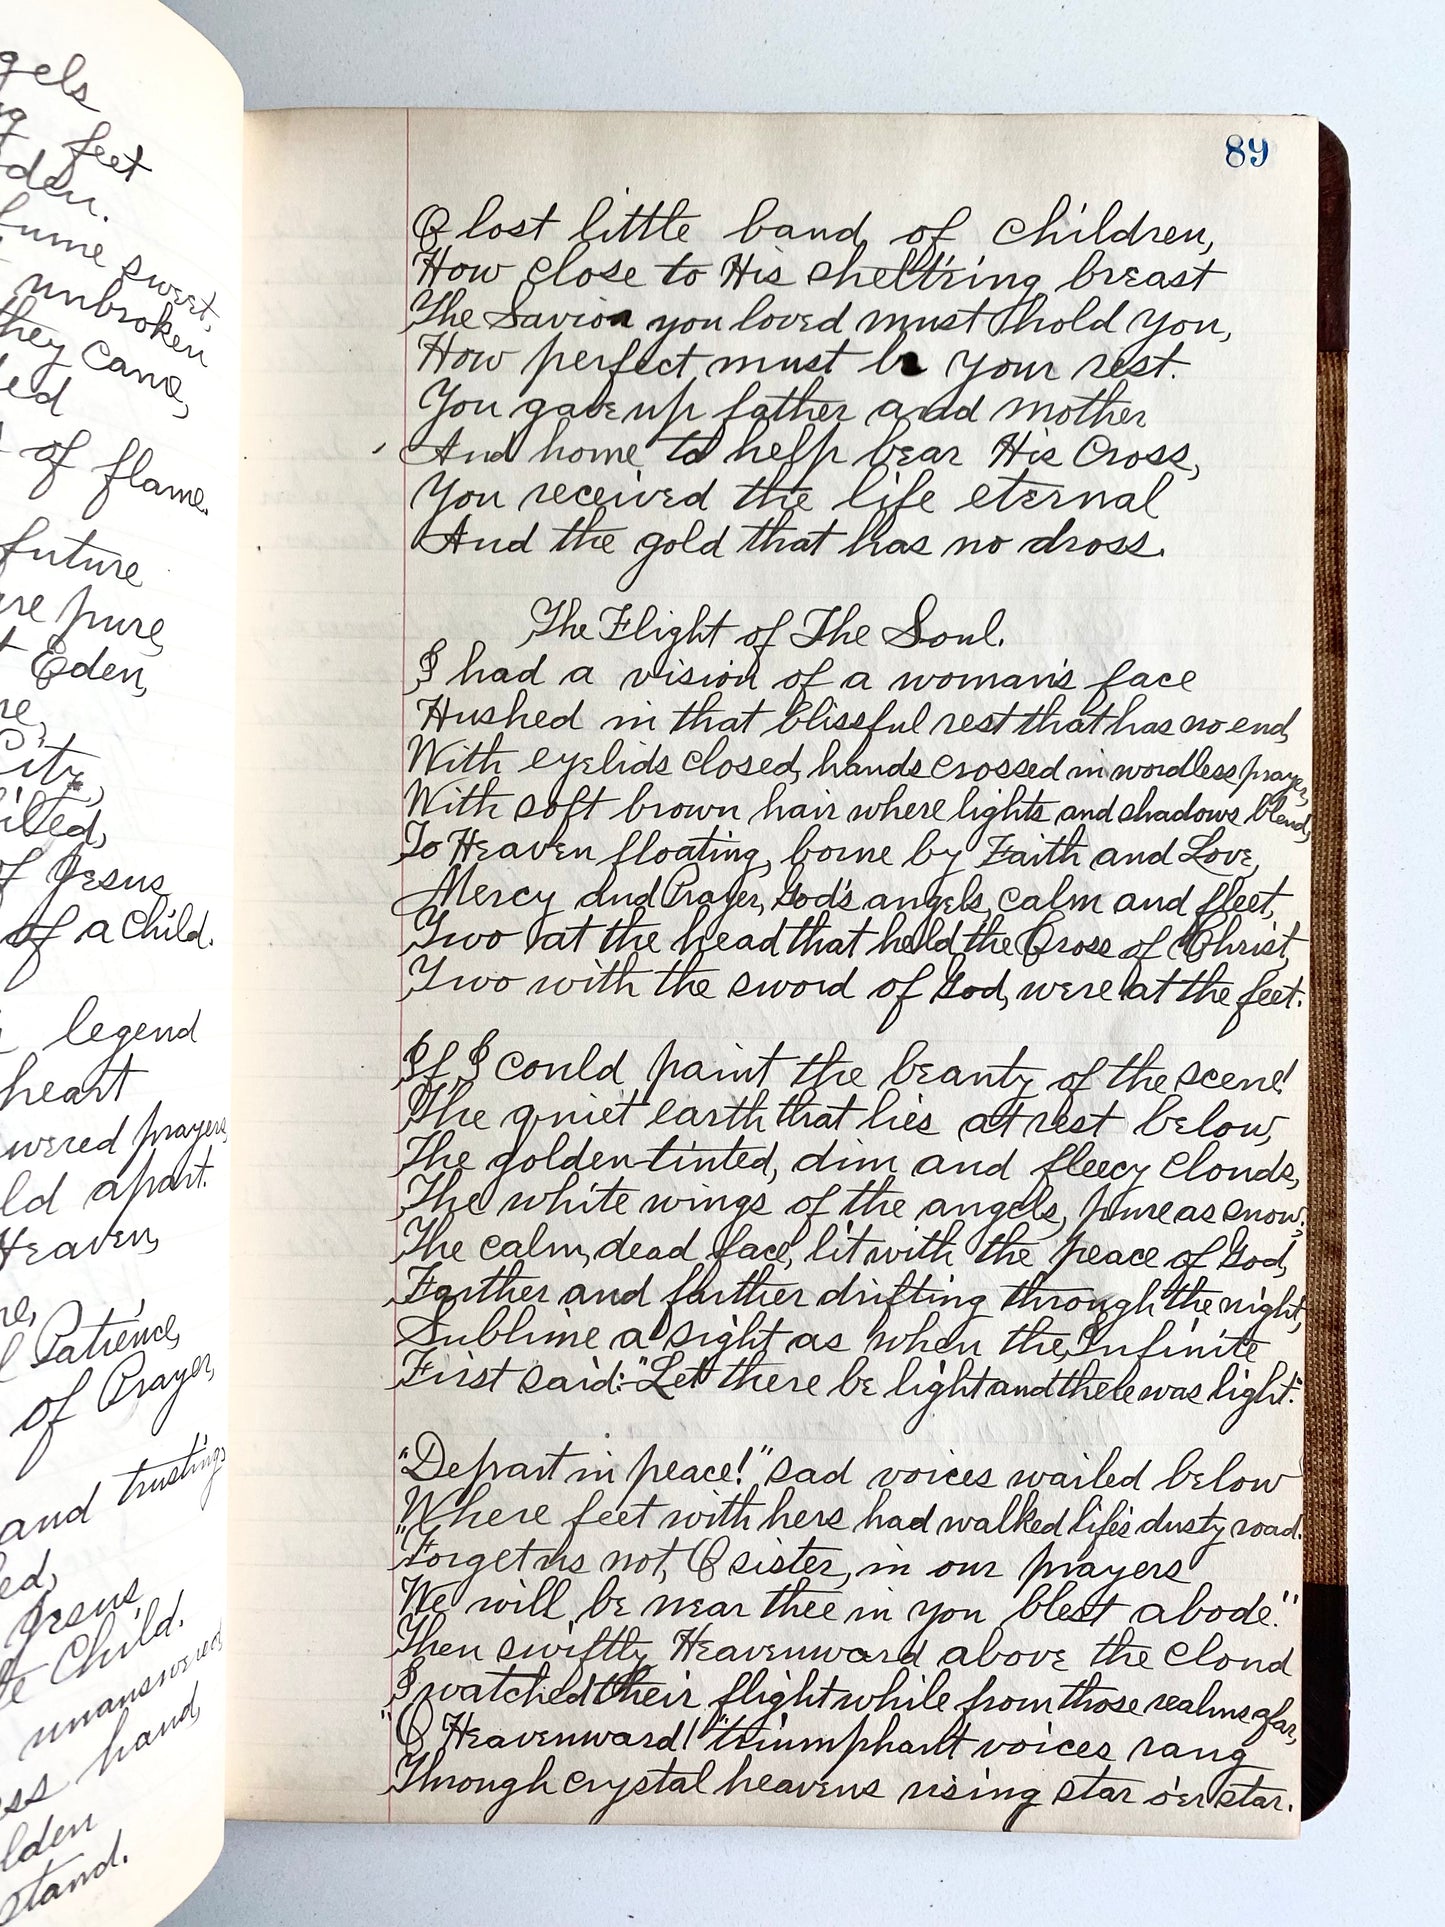 gels
feet
den.
fume sweet,
unbroken
they came,
ed
of flame.
future
pure,
Eden,
City,
of Jesus
of a Child.
legend
heart
prayers
ld apart.
Heaven,
Patience,
of Prayer,
and trustings
ed,
Jesus
Child.
unanswered
hand,
lden
stand.
89
O lost little band of children,
How close to His shelt'ring breast
The Savior you loved must hold you,
How perfect must be your rest.
You gave up father and mother
And home to help bear His Cross,
You received the life eternal
And the gold that has no dross.
The Flight of The Soul.
I had a vision of a woman's face
Hushed in that blissful rest that has no end,
With eyelids closed, hands crossed in wordless prayer,
With soft brown hair where lights and shadows blend,
To Heaven floating, borne by Faith and Love,
Mercy and Prayer, God's angels, calm and fleet,
Two at the head that held the Cross of Christ,
Two with the sword of God, were at the feet.
If I could paint the beauty of the scene!
The quiet earth that lies at rest below,
The golden-tinted, dim and fleecy clouds,
The white wings of the angels, pure as snow;
The calm, dead face, lit with the peace of God,
Farther and farther drifting through the night,
Sublime a sight as when the Infinite
First said: "Let there be light and there was light."
"Depart in peace!" sad voices wailed below
Where feet with hers had walked life's dusty road.
"Forget us not, O sister, in our prayers
We will be near thee in you blest abode."
Then swiftly Heavenward above the cloud
I watched their flight while from those realms afar,
"O Heavenward!" triumphant voices rang
Through crystal heavens rising star o'er star.